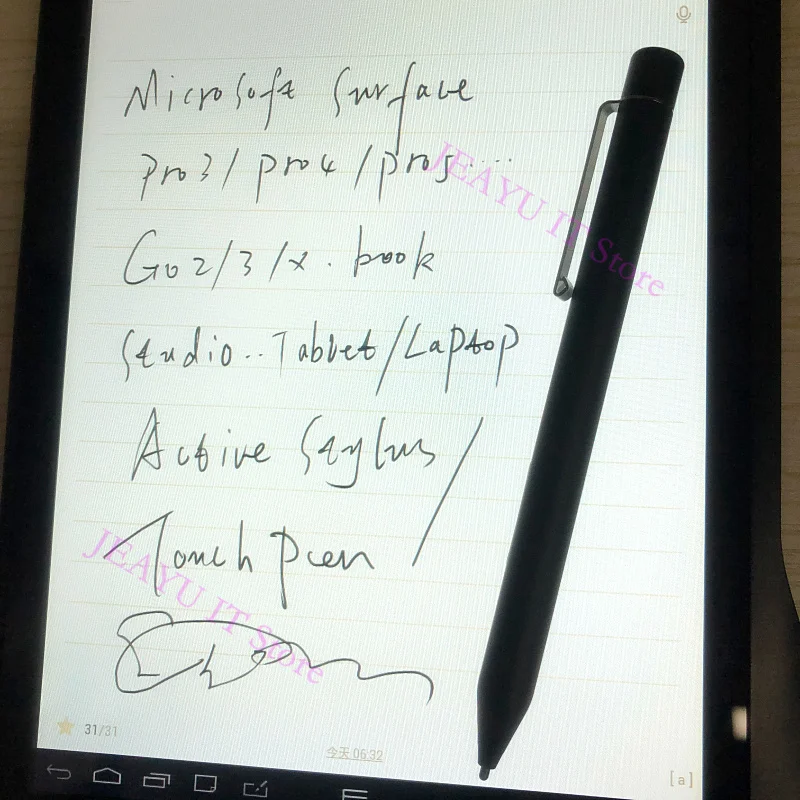 Microsoft Surface
Pro3/pro4/pro5....
Go2/3/x.book
Studio..Tablet/Laptop
Active Stylus/
Touch pen
JEAYU IT Store
JEAYU IT Store
31/31
今天 06:32
[a]